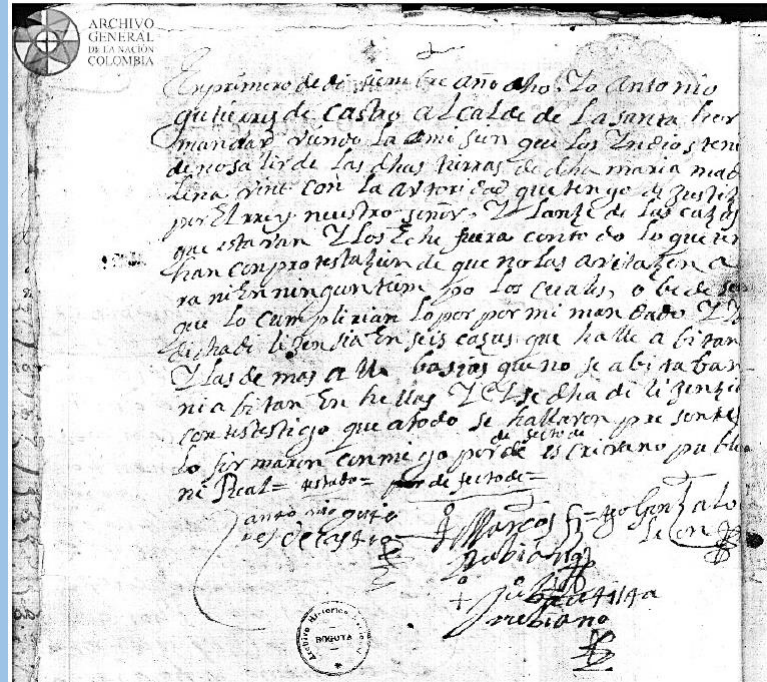 ARCHIVO
GENERAL
DE LA NACIÓN
COLOMBIA
En primero de disiembre año dho Yo Antonio
gutierres de Castro alcalde de La santa her
mandad viendo La omision que Los Indios teni
de no salir de Las dhas tierras de dha maria mad
lena vine con La autoridad que tengo de justizi
por El rrey nuestro señor, Y Lanse de Las cazas
que estavan Y Los Eche fuera con todo Lo que te
han con protestazion de que no Las avitazen a
ra ni En ningun tiem po Los cuales, o bede
que Lo cumplirian Lo por por mi mandado Y
dicha di lizensia En seis casas que halle a bitan
Y Las de mas a lla basias que no se abitaban
ni a bitan En hellas
con testesigo que a todo se hallaron pre sentes
de fecto de
Lo firmaron conmigo por de es crivano publico
ni Real= testado= por de fecto de=
anto nio gutie
res de castro
Marcos
rubiano
Gonzalo
Leon
jū bautista
rubiano
Archivo Historico
BOGOTA